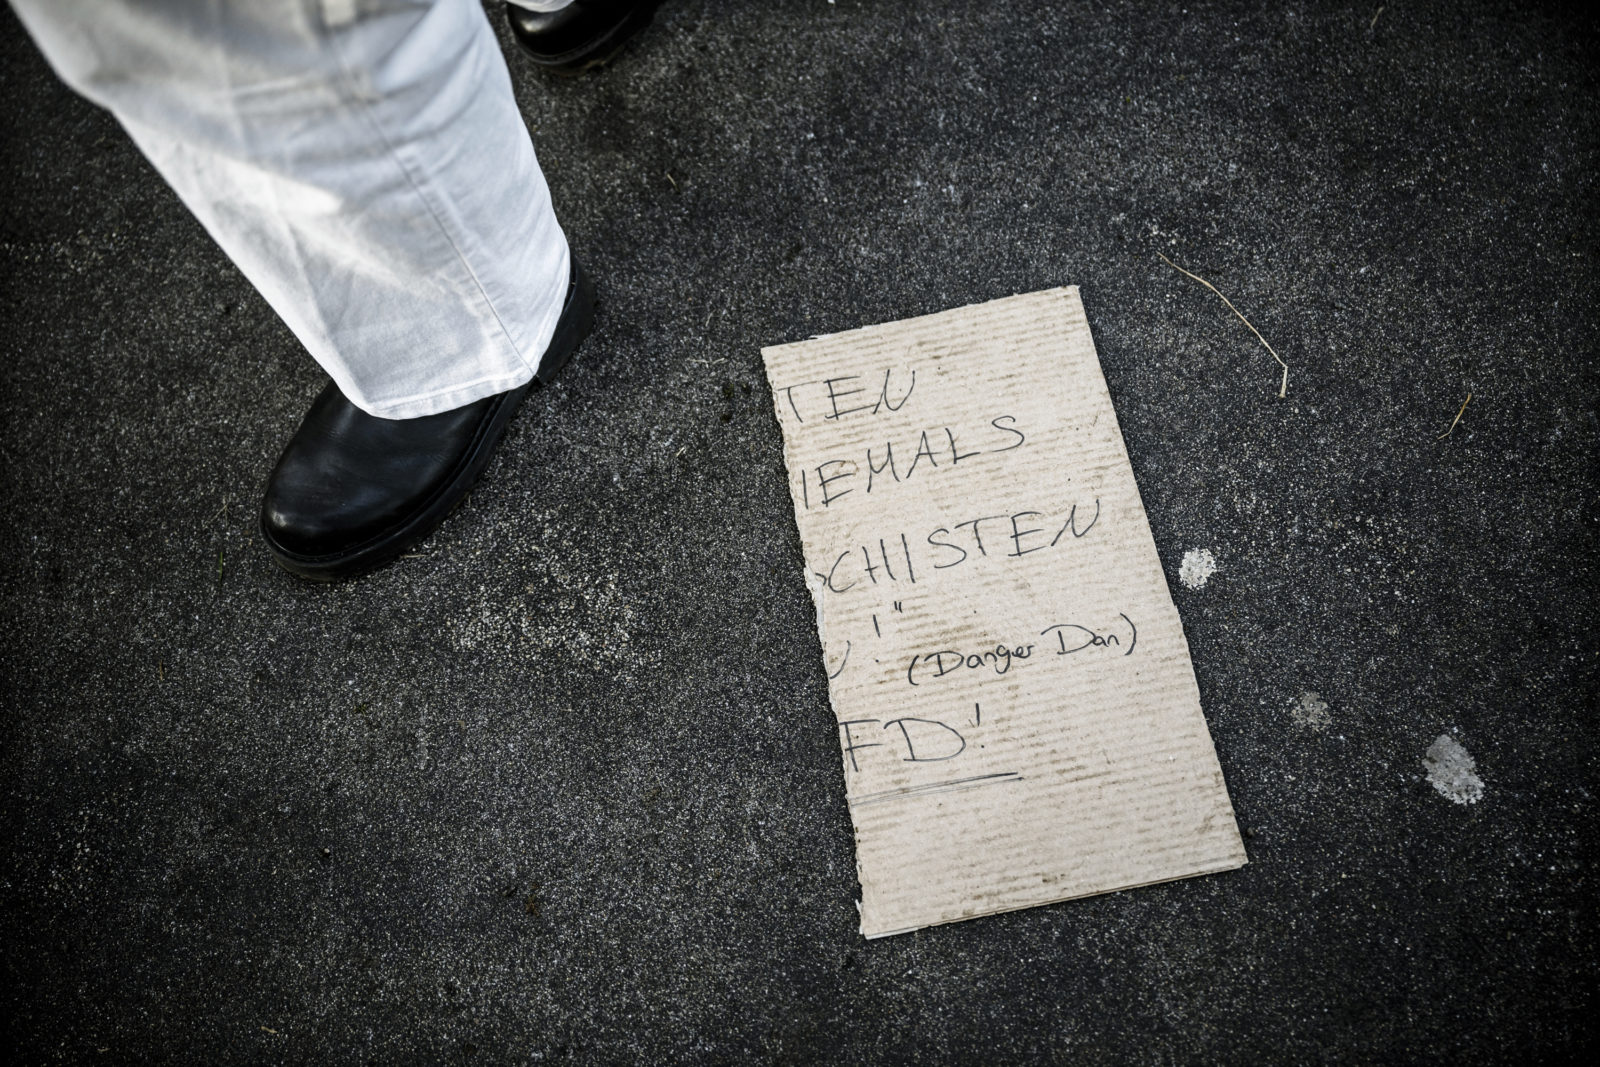 TEN
IEMALS
CHISTEN
!"
(Danger Dan)
FD!